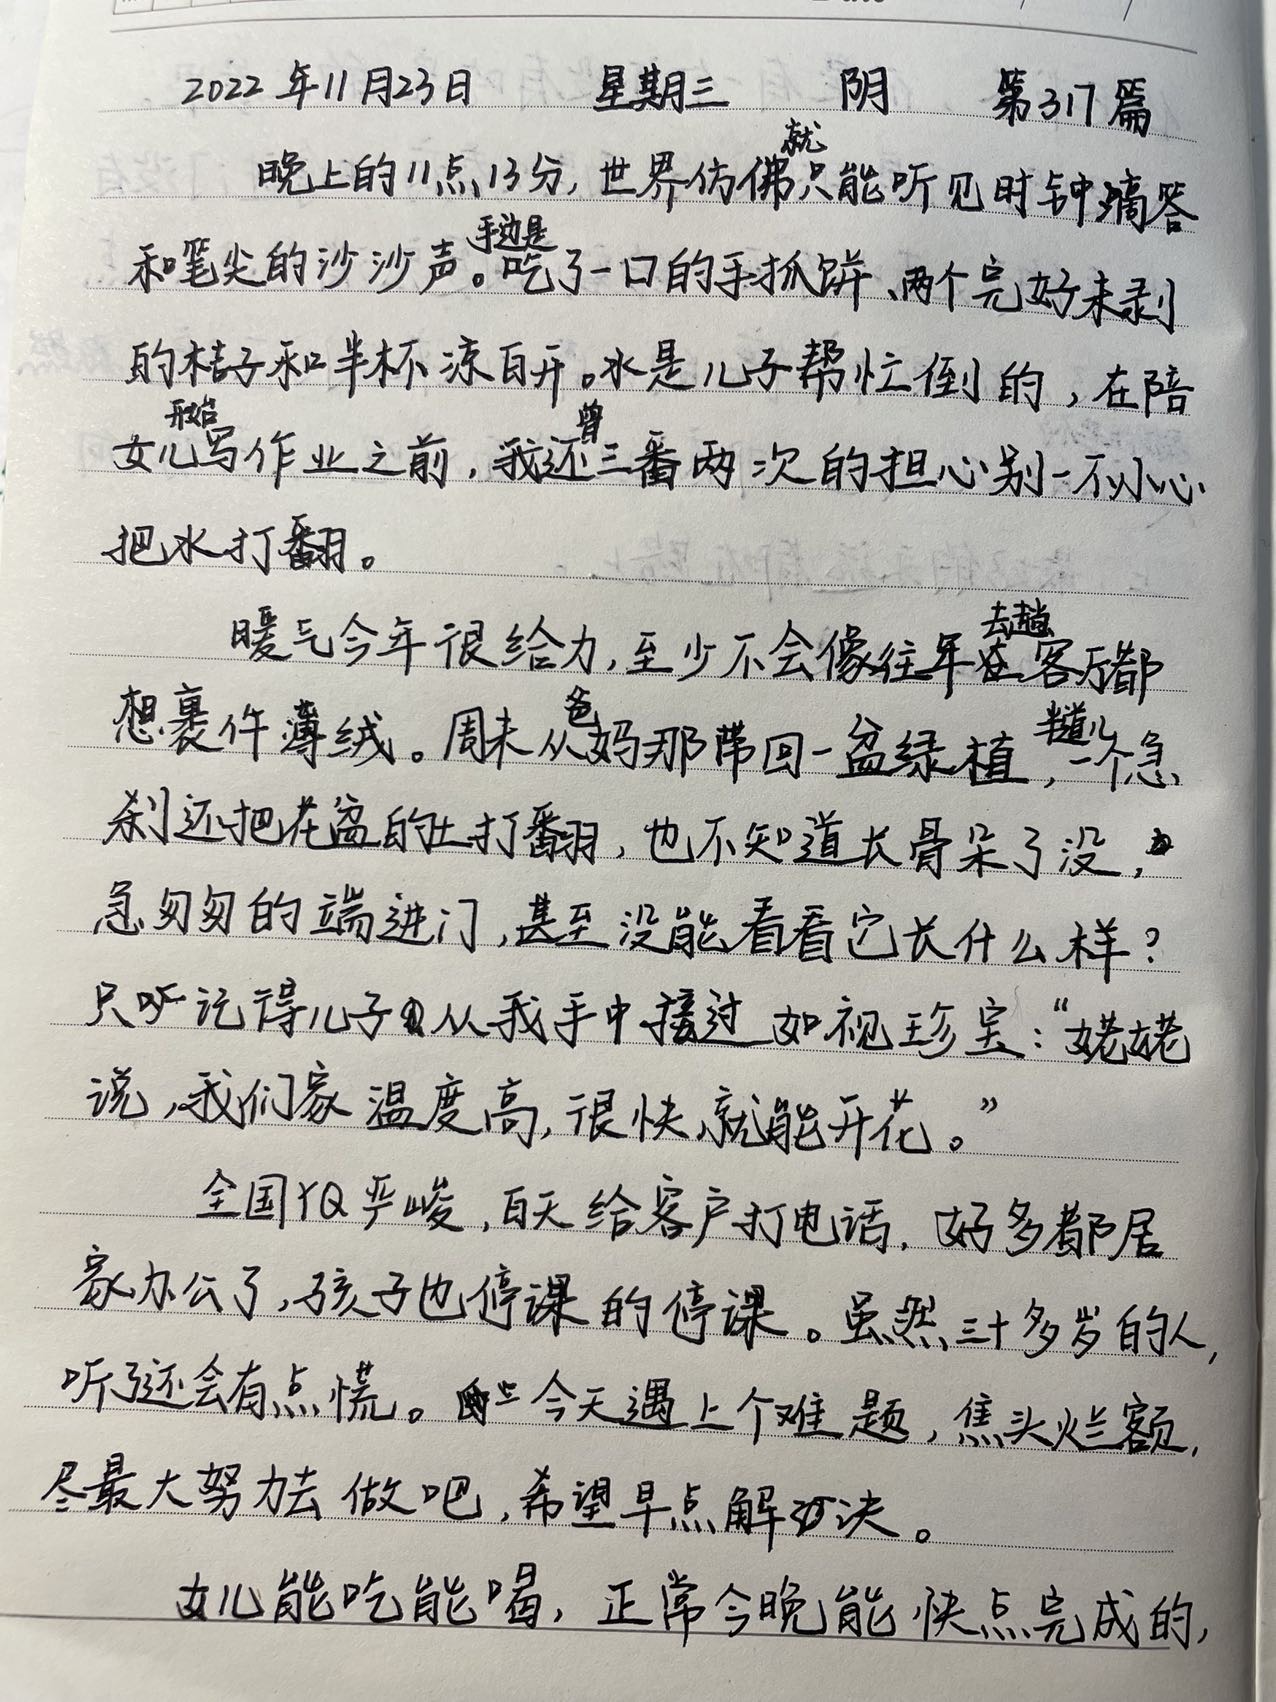 2022年11月23日 星期三 阴 第317篇
晚上的11点13分,世界仿佛就只能听见时钟滴答
和笔尖的沙沙声。手边是吃了一口的手抓饼、两个完好未剥
的桔子和半杯凉白开。水是儿子帮忙倒的,在陪
女儿开始写作业之前,我还曾三番两次的担心别一不小心
把水打翻。
暖气今年很给力,至少不会像往年去趟客厅都
想裹件薄绒。周末从爸妈那带回一盆绿植,半道儿一个急
刹还把花盆的土打翻,也不知道长骨朵了没,
急匆匆的端进门,甚至没能看看它长什么样?
只听记得儿子从我手中接过如视珍宝:“姥姥
说,我们家温度高,很快就能开花。”
全国YQ严峻,白天给客户打电话,好多都居
家办公了,孩子也停课的停课。虽然三十多岁的人,
听了还会有点慌。今天遇上个难题,焦头烂额,
尽最大努力去做吧,希望早点解决。
女儿能吃能喝,正常今晚能快点完成的,